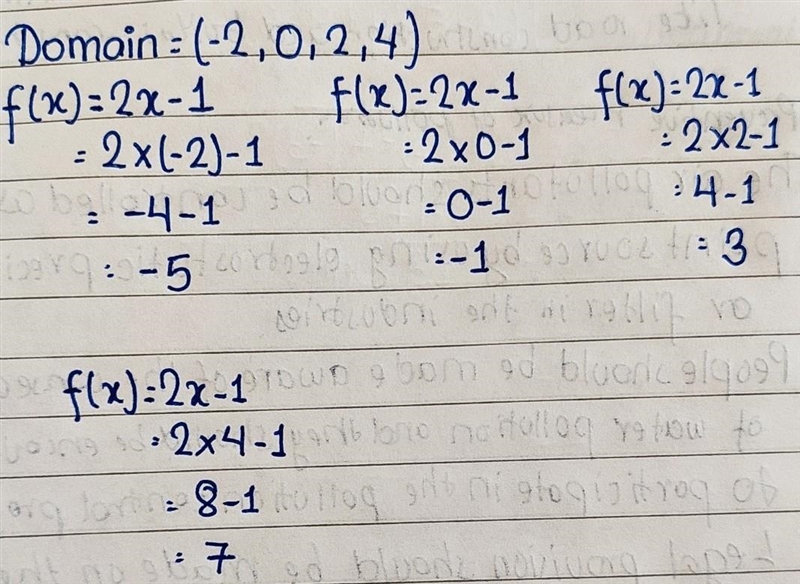 Domain = (-2, 0, 2, 4)
f(x) = 2x - 1
= 2 x (-2) - 1
= -4 - 1
= -5
f(x) = 2x - 1
= 2 x 0 - 1
= 0 - 1
= -1
f(x) = 2x - 1
= 2 x 2 - 1
= 4 - 1
= 3
f(x) = 2x - 1
= 2 x 4 - 1
= 8 - 1
= 7